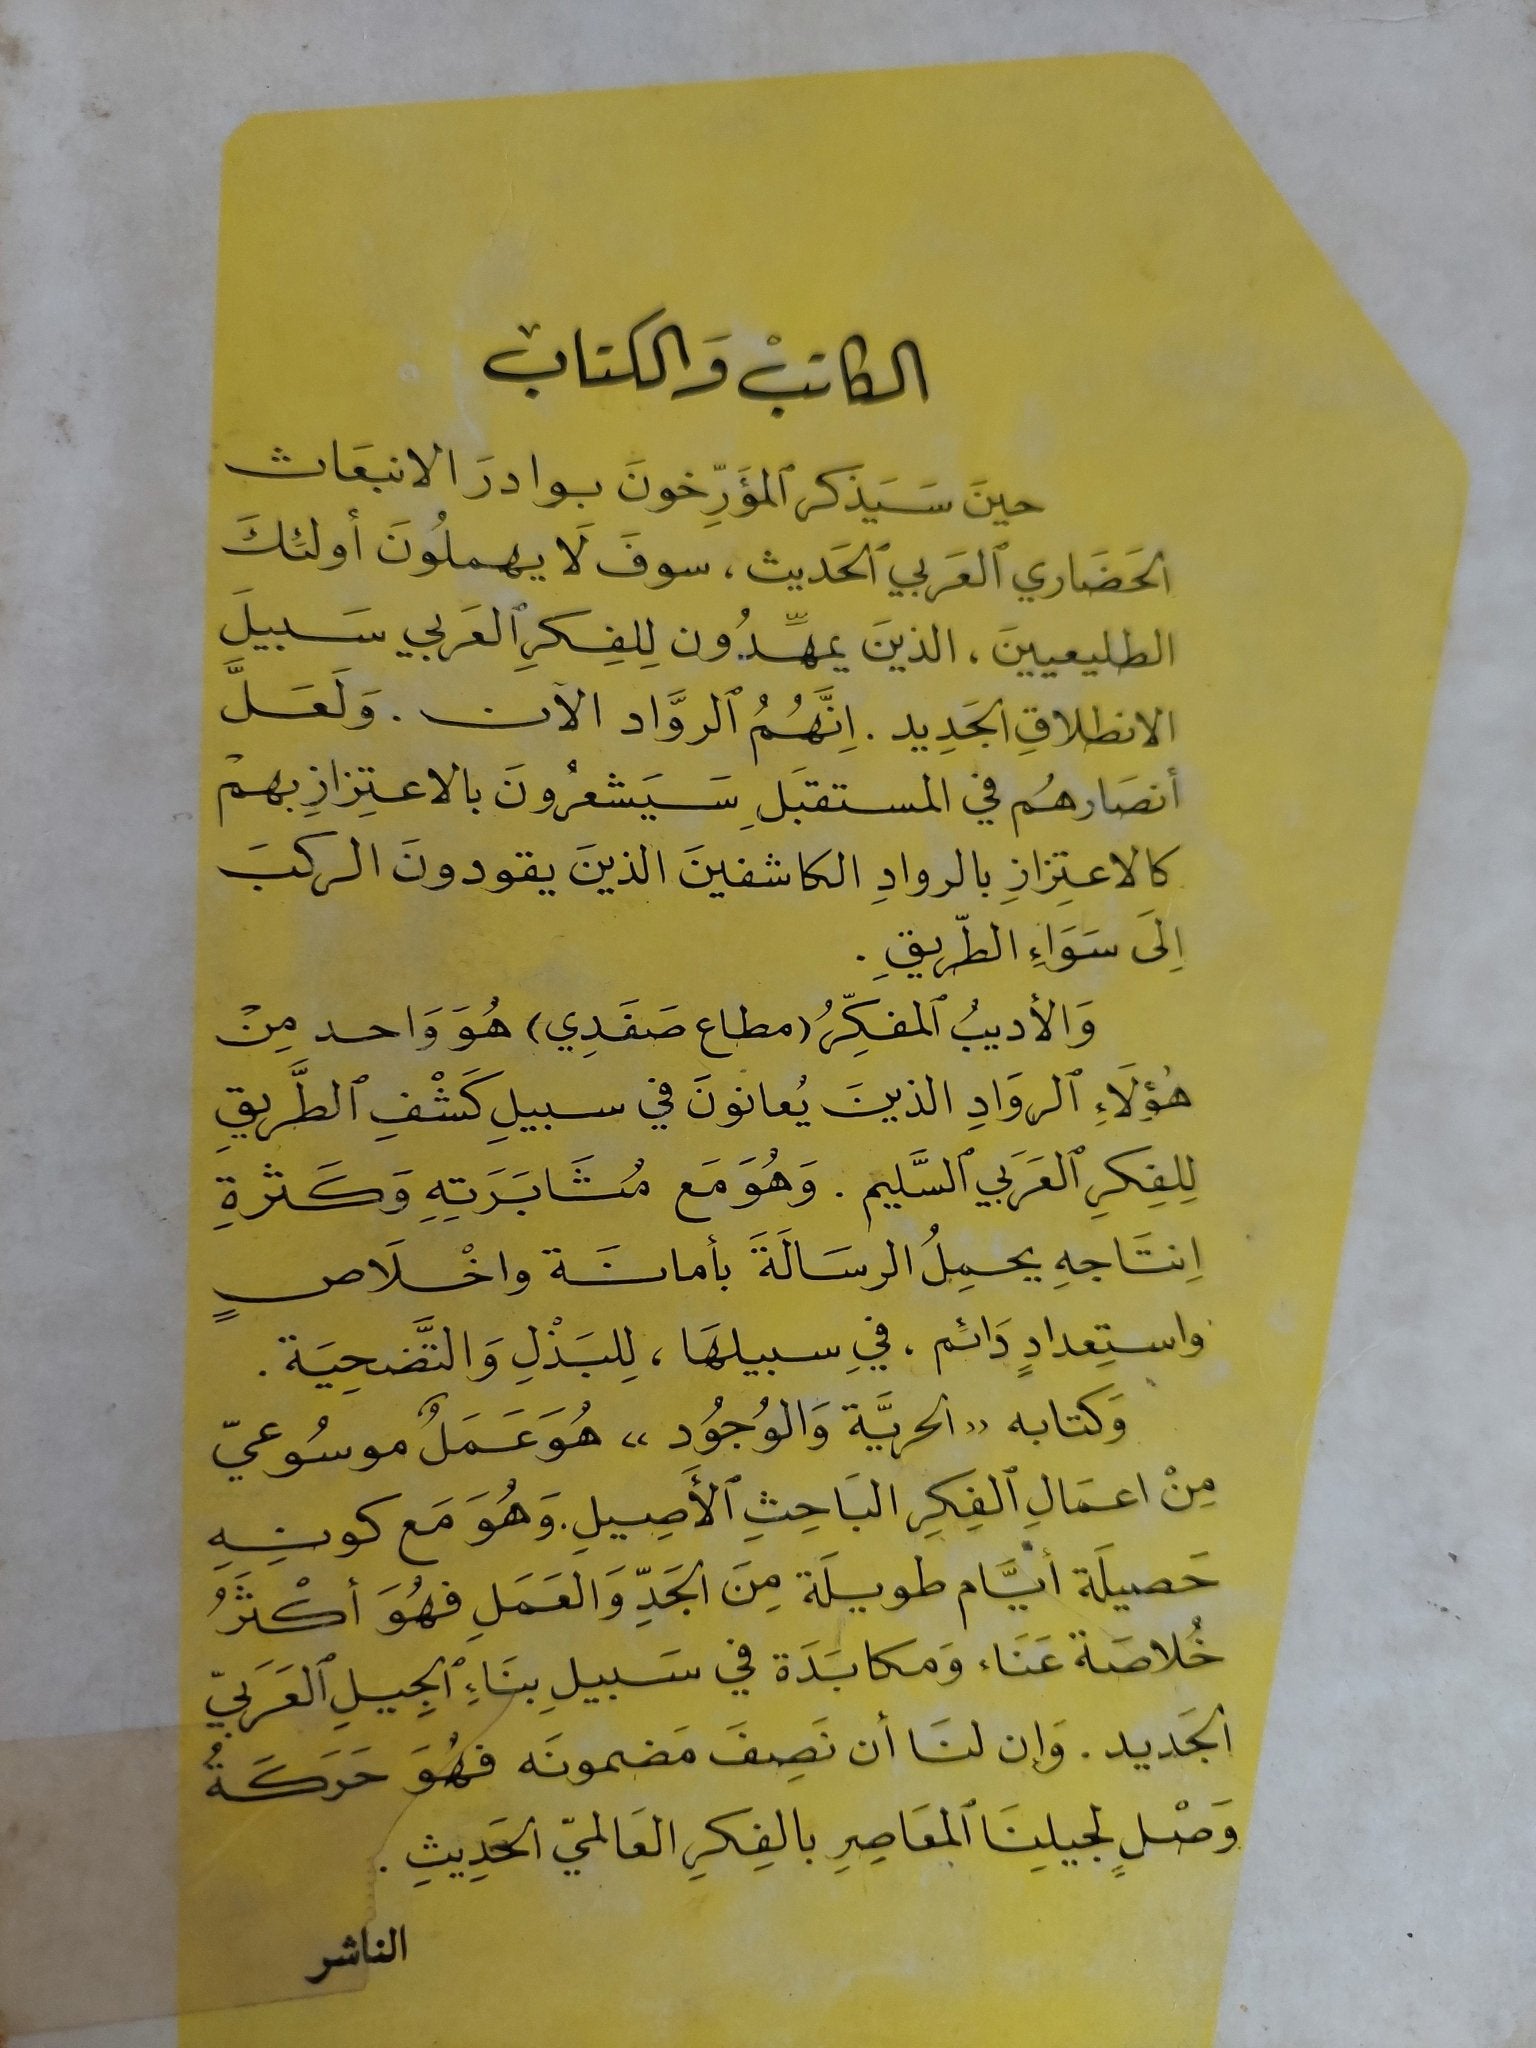 الكاتبْ وَالكتابْ
حينَ سَيَذكر ٱلمؤَرِّخونَ بوادرَ الانبعَاث
الحَضَاري ٱلعَربي ٱلحَديث ، سوفَ لَا يهملُونَ أولئكَ
الطليعيينَ ، الذينَ يمهِّدُون لِلفِكرِ ٱلعَربي سَبيلَ
الانطلاقِ الجَدِيد . اِنَّهُمُ ٱلروَّاد الآن . وَلَعَلَّ
أنصَارهُم في المستقبَلِ سَيَشعرُونَ بالاعتِزازِ بهمْ
كالاعتِزازِ بالروادِ الكاشفينَ الذينَ يقودونَ الركبَ
اِلَى سَوَاءِ الطّريقِ .
وَالأديبُ ٱلمفكِّرُ (مطاع صَفَدِي) هُوَ وَاحد مِنْ
هُؤلَاءِ ٱلروَادِ الذينَ يُعانونَ في سبيلِ كَشْفِ ٱلطَّريقِ
لِلفِكرِ ٱلعَرَبي ٱلسَّليم . وَهُوَ مَع مُثَابَرَتِهِ وَكَثرةِ
اِنتَاجهِ يحمِلُ الرسَالَةَ بأمانَة واخْلَاصٍ
واستِعدادٍ دَائم ، فيِ سبيلهَا ، لِلبَذْلِ وَالتَّضحِيَة .
وَكتابه «الحريَّة وَالوُجُود» هُوَ عَمَلٌ موسُوعيّ
مِنْ اعمَالِ ٱلفِكِرِ البَاحِثِ ٱلأَصِيلِ . وَهُوَ مَع كونِهِ
حَصيلَة أيَّام طويلَة مِنَ الجَدِّ وَالعَمَلِ فهُوَ أكْثَرُ
خُلاصَة عَنَاء وَمكابَدَة في سَبيلِ بنَاءِ ٱلجِيلِ ٱلعَرَبيّ
الجَديد . وَإن لنَا أن نَصِفَ مَضمونَه فهُوَ حَرَكَةُ
وَصْلٍ لجيلِنَا ٱلمعَاصِرِ بالفِكرِ العَالميّ الحَدِيثِ .
الناشر